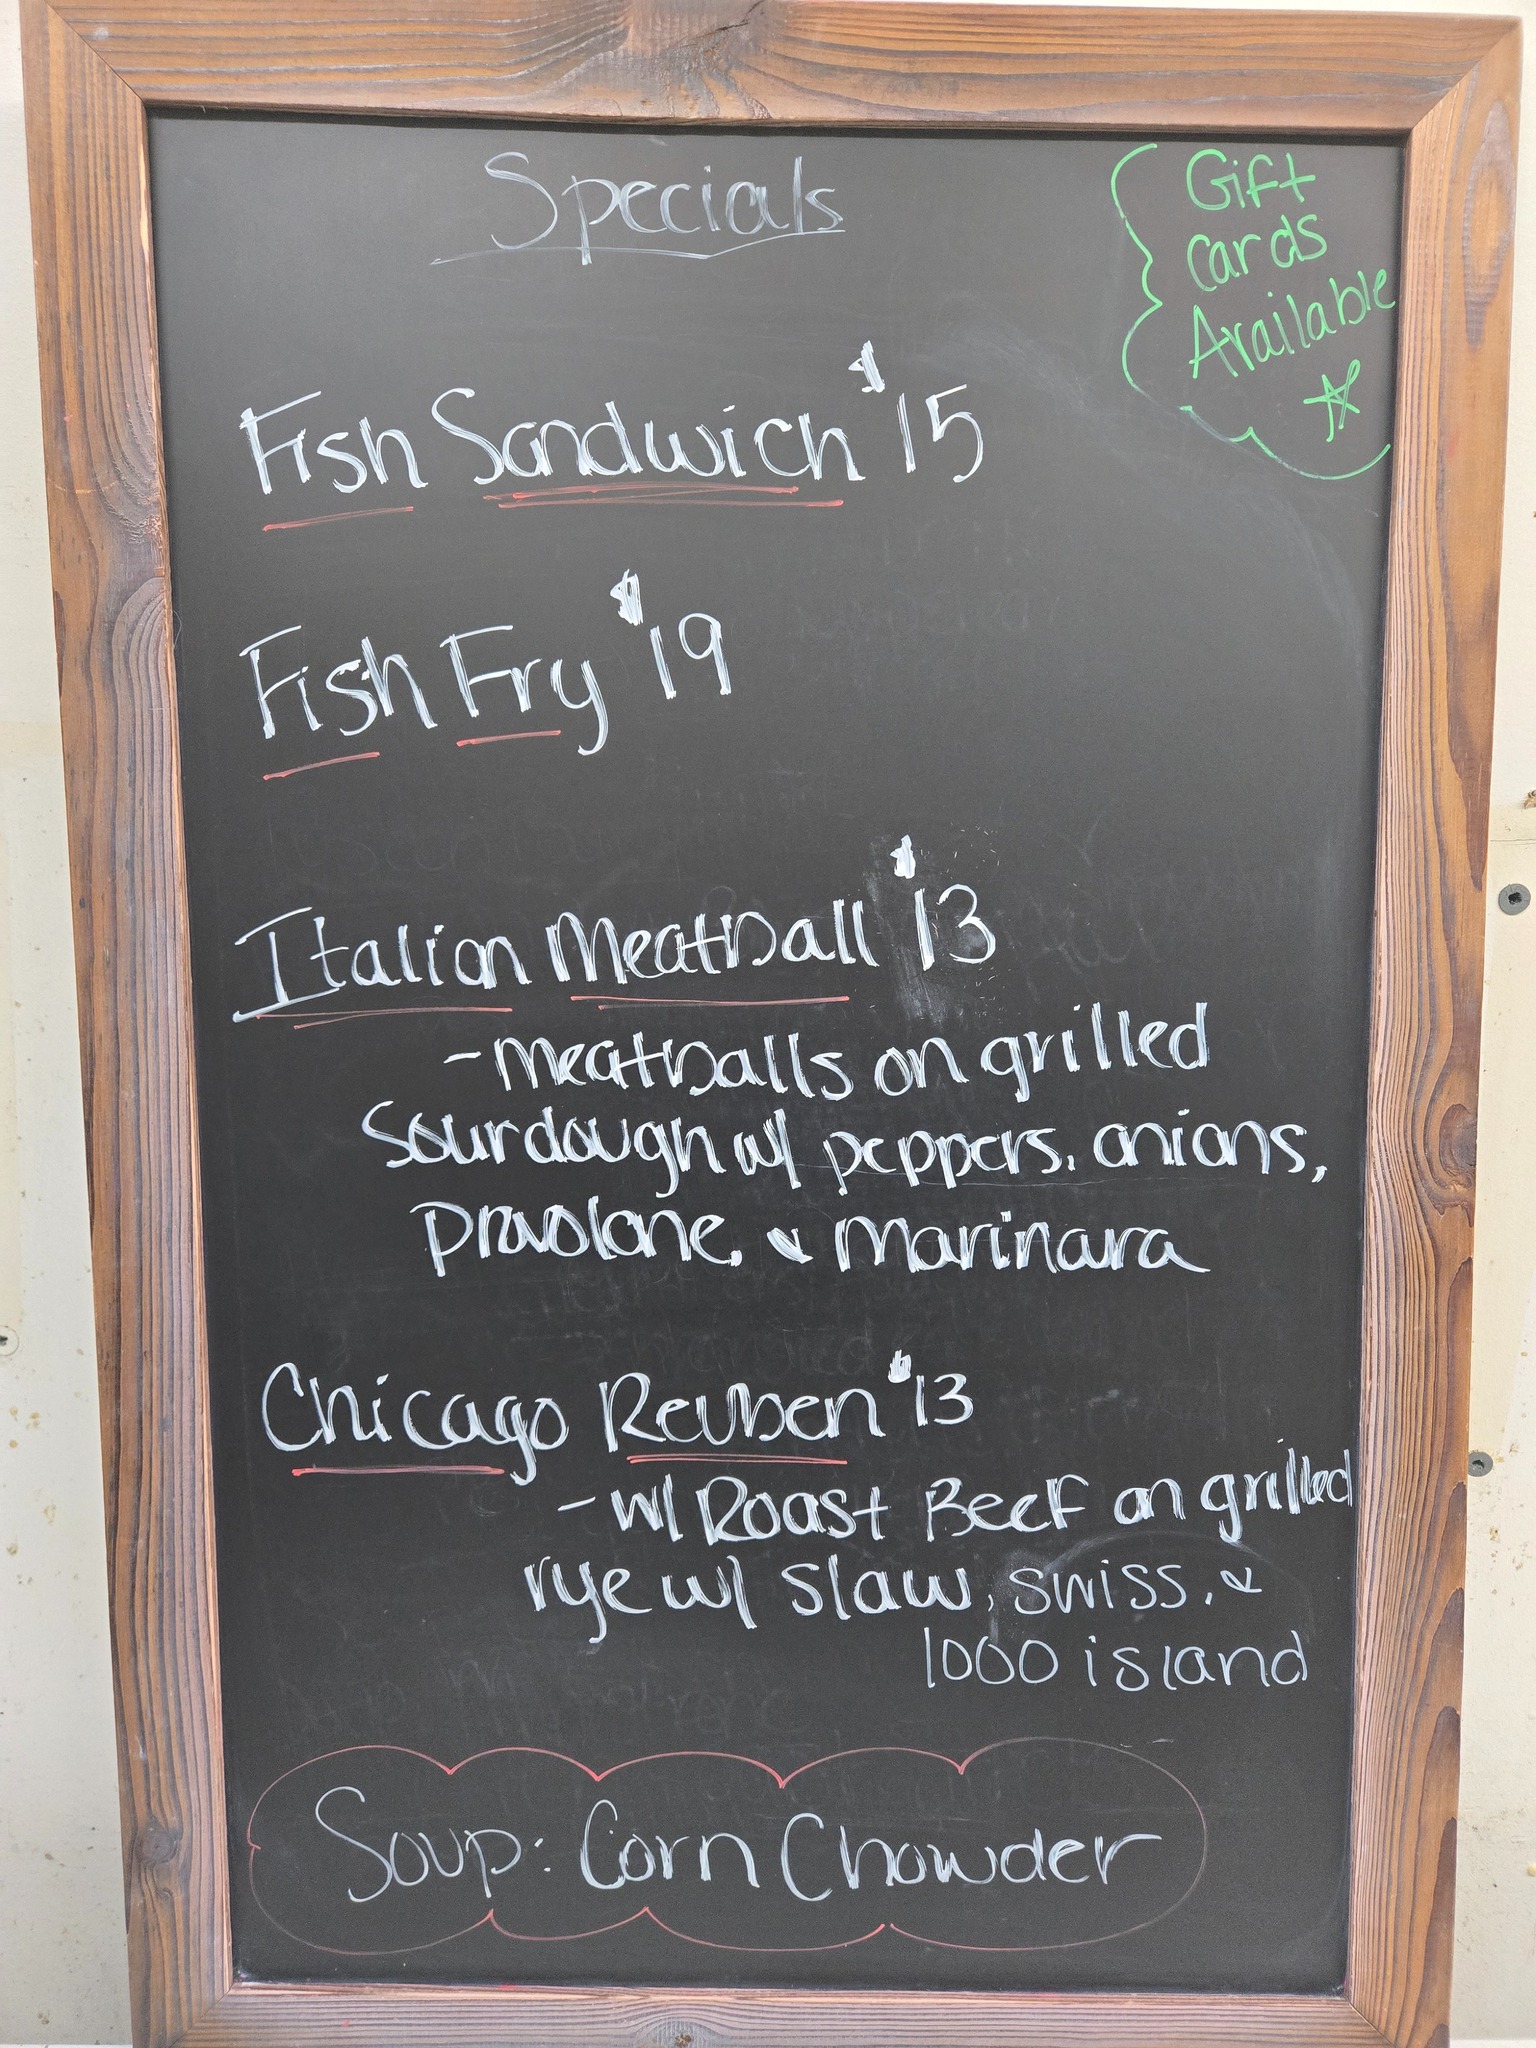 Specials
Gift
Cards
Available
Fish Sandwich $15
Fish Fry $19
Italian Meatball $13
- Meatballs on grilled
Sourdough w/ peppers, onions,
provolone, & Marinara
Chicago Reuben $13
- w/ Roast Beef on grilled
rye w/ slaw, swiss, &
1000 island
Soup: Corn Chowder